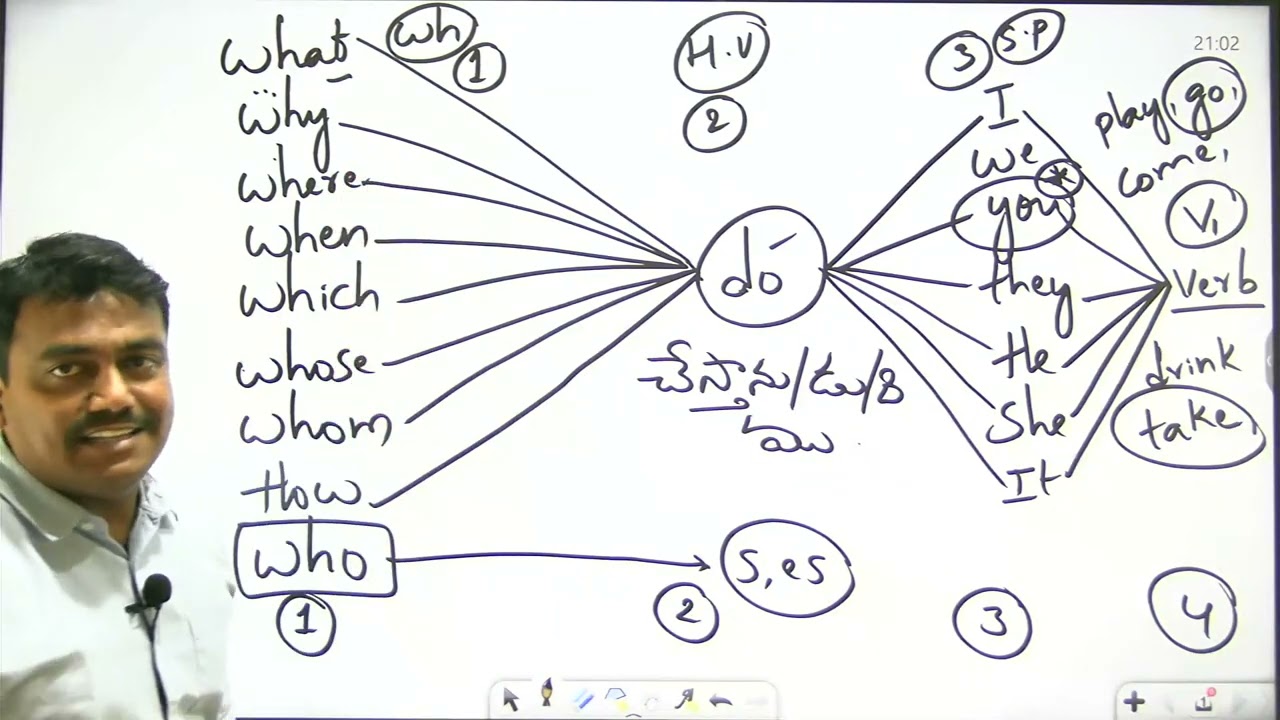 what wh 1
why
where
when
which
whose
whom
How
who
1
H.V
2
do
చేస్తాను/డు/రి
ము
2
s, es
3 S.P
I
we
you *
they
He
She
It
3
21:02
play, go,
come,
V1
Verb
drink
take,
4